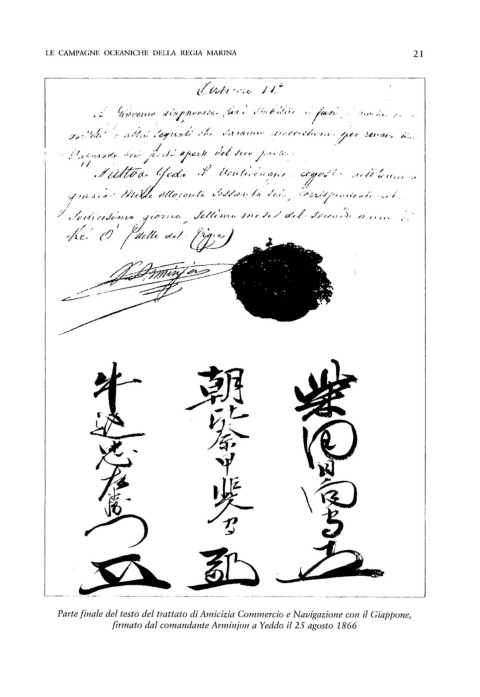 LE CAMPAGNE OCEANICHE DELLA REGIA MARINA
21
Articolo 11.°
Il Governo giapponese farà stabilire i fari
o altri segnali che saranno necessari per
porti aperti del suo paese
Yedo il venticinque agosto dell'anno
grazia mille ottocento sessanta sei, corrispondente al
giorno, settimo mese del secondo anno
(detto del Tigre)
Arminjon
柴田日向守
朝比奈甲斐守
牛込忠左衛門
Parte finale del testo del trattato di Amicizia Commercio e Navigazione con il Giappone,
firmato dal comandante Arminjon a Yeddo il 25 agosto 1866